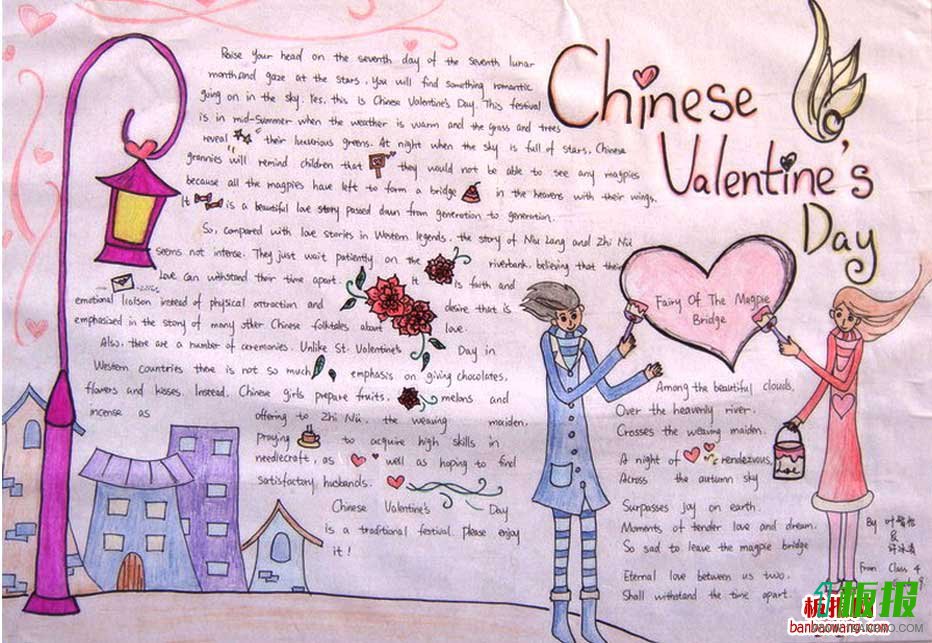 Chinese
Valentine's
Day
Raise your head on the seventh day of the seventh lunar
month, and gaze at the stars, you will find something romantic
going on in the sky. Yes, this is Chinese Valentine's Day. This festival
is in mid-summer when the weather is warm and the grass and trees
reveal their luxurious greens. At night when the sky is full of stars, Chinese
grannies will remind children that they would not be able to see any magpies
because all the magpies have left to form a bridge in the heavens with their wings.
It is a beautiful love story passed down from generation to generation.
So, compared with love stories in Western legends, the story of Niu Lang and Zhi Nü
seems not intense. They just wait patiently on the riverbank, believing that their
Love can withstand their time apart. It is faith and
emotional liaison instead of physical attraction and desire that is
emphasized in the story of many other Chinese folktales about love.
Also, there are a number of ceremonies. Unlike St. Valentine's Day in
Western countries there is not so much emphasis on giving chocolates,
flowers and kisses. Instead, Chinese girls prepare fruits, melons and
incense as offering to Zhi Nü, the weaving maiden,
praying to acquire high skills in
needlecraft, as well as hoping to find
satisfactory husbands.
Chinese Valentine's Day
is a traditional festival. Please enjoy
it!
Fairy Of The Magpie
Bridge
Among the beautiful clouds,
Over the heavenly river,
Crosses the weaving maiden.
A night of rendezvous,
Across the autumn sky
Surpasses joy on earth.
Moments of tender love and dream.
So sad to leave the magpie bridge
Eternal love between us two,
Shall withstand the time apart.
love
By 叶
From Class 4
板报网
banbaowang.com
板报